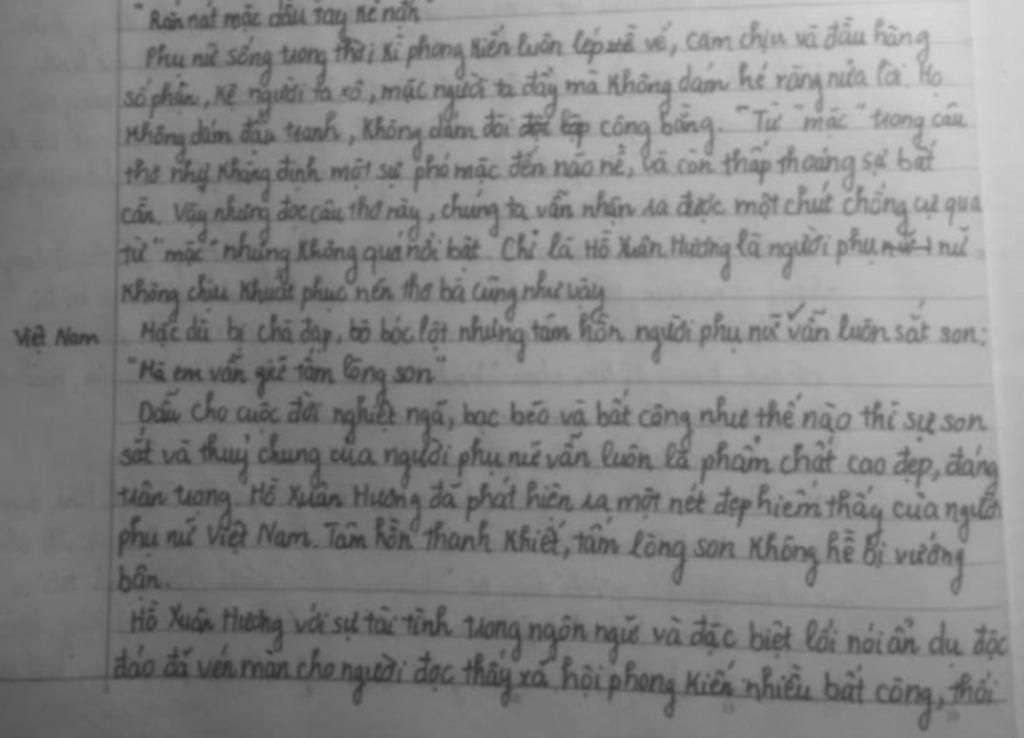 "Rắn nát mặc dầu tay kẻ nặn"
Phụ nữ sống trong thời kì phong kiến luôn lép vế, cam chịu và đầu hàng
số phận, kệ người ta xô, mặc người ta đẩy mà không dám hé răng nửa lời. Họ
không dám đấu tranh, không dám đòi độc lập công bằng. "Từ "mặc" trong câu
thơ như khẳng định một sự phó mặc đến não nề, và còn thấp thoáng sự bất
cần. Vậy nhưng đọc câu thơ này, chúng ta vẫn nhận ra được một chút chống cự qua
từ "mặc" nhưng không quá nổi bật. Chỉ là Hồ Xuân Hương là người phụ nữ
không chịu khuất phục nên thơ bà cũng như vậy
Việt Nam Mặc dù bị chà đạp, bô bóc lột nhưng tâm hồn người phụ nữ vẫn luôn sắt son:
"Mà em vẫn giữ tấm lòng son"
Dẫu cho cuộc đời nghiệt ngã, bạc bẽo và bất công như thế nào thì sự son
sắt và thuỷ chung của người phụ nữ vẫn luôn là phẩm chất cao đẹp, đáng
trân trọng. Hồ Xuân Hương đã phát hiện ra một nét đẹp hiếm thấy của người
phụ nữ Việt Nam. Tâm hồn thanh khiết, tấm lòng son không hề bị vướng
bẩn.
Hồ Xuân Hương với sự tài tình trong ngôn ngữ và đặc biệt lối nói ẩn dụ độc
đáo đã vén màn cho người đọc thấy xã hội phong kiến nhiều bất công, thối